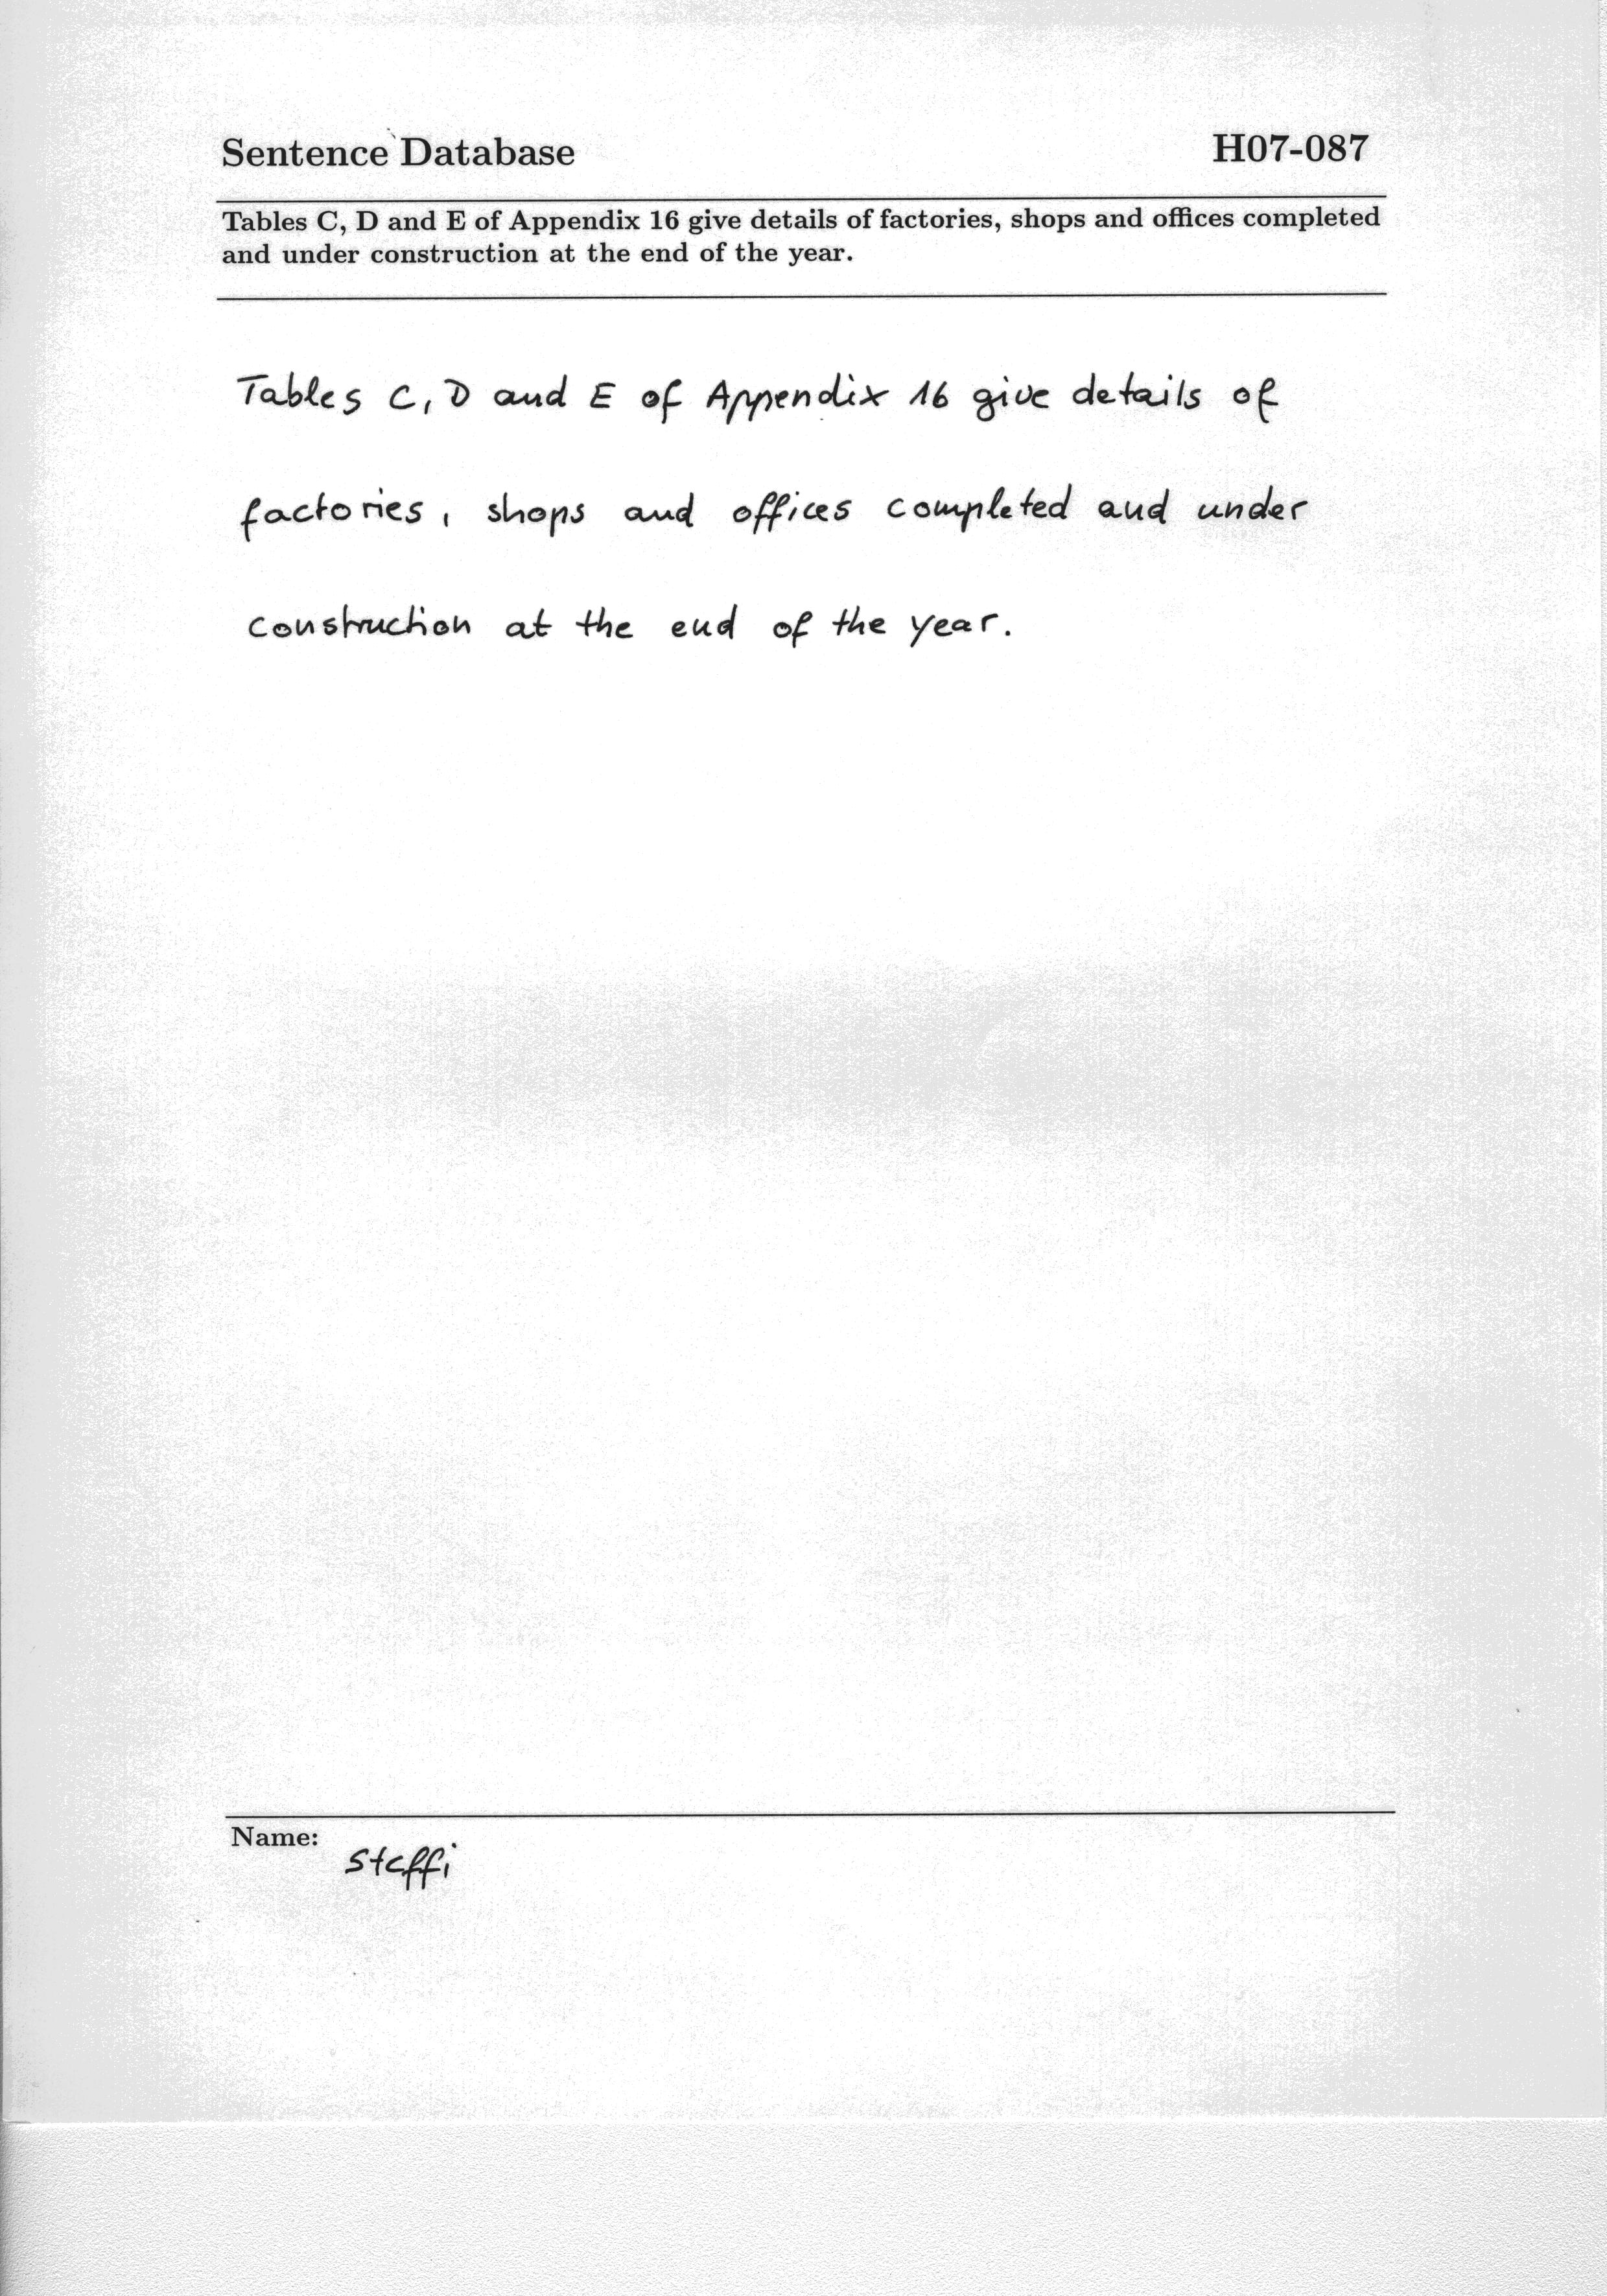 Sentence Database H07-087
Tables C, D and E of Appendix 16 give details of factories, shops and offices completed
and under construction at the end of the year.
Tables C, D and E of Appendix 16 give details of
factories, shops and offices completed and under
construction at the end of the year.
Name:
Steffi